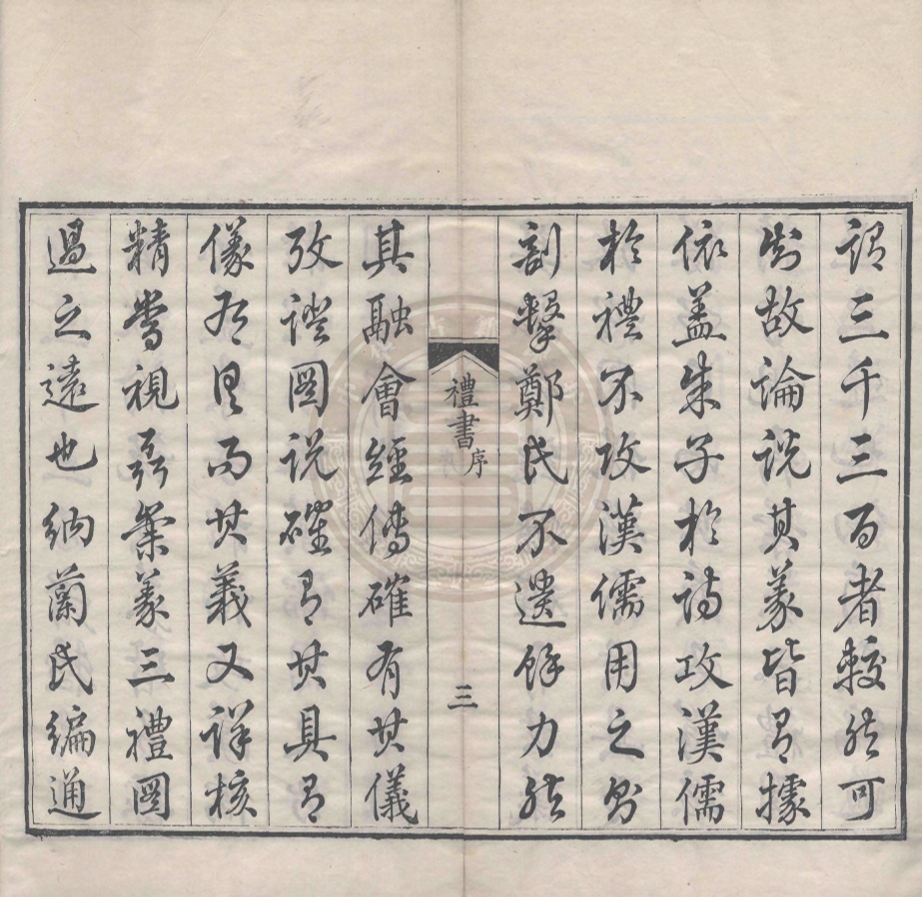 謂三千三百者較然可
故論說其義皆有據
依蓋朱子於詩攻漢儒
於禮不攻漢儒用之則
剖擊鄭氏不遺餘力然
禮書序
三
其融會經傳確有其儀
攷證圖說確有其具有
儀有具而其義又詳核
精當視聶崇義三禮圖
過之遠也納蘭氏編通